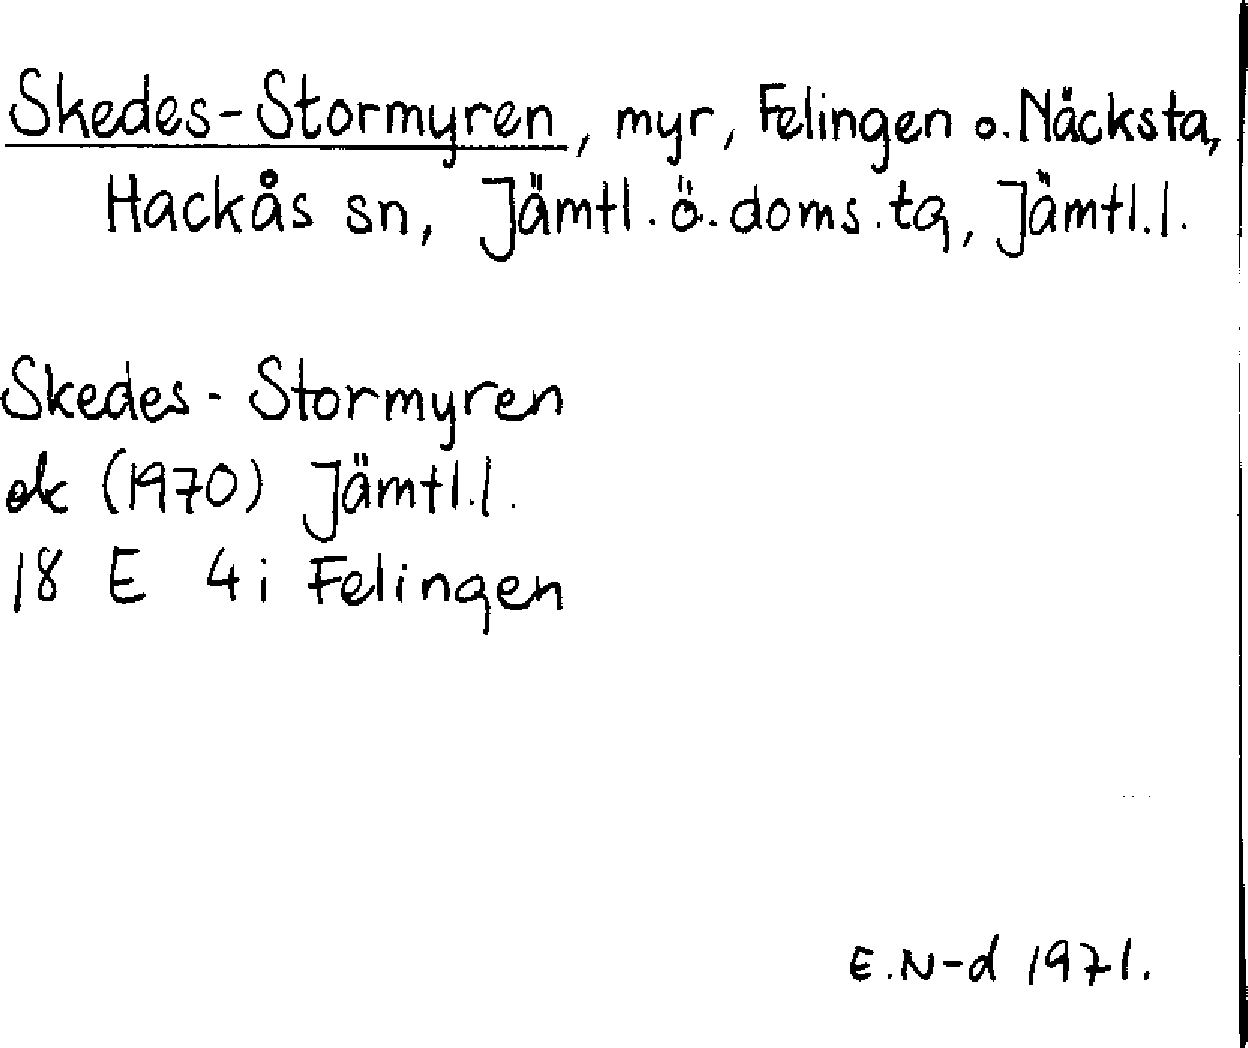 Skedes-Stormyren, myr, Felingen o. Näcksta,
Hackås sn, Jämtl. ö. doms. tg, Jämtl. l.
Skedes - Stormyren
ek (1970) Jämtl. l.
18 E 4 i Felingen
E. N-d 1971.